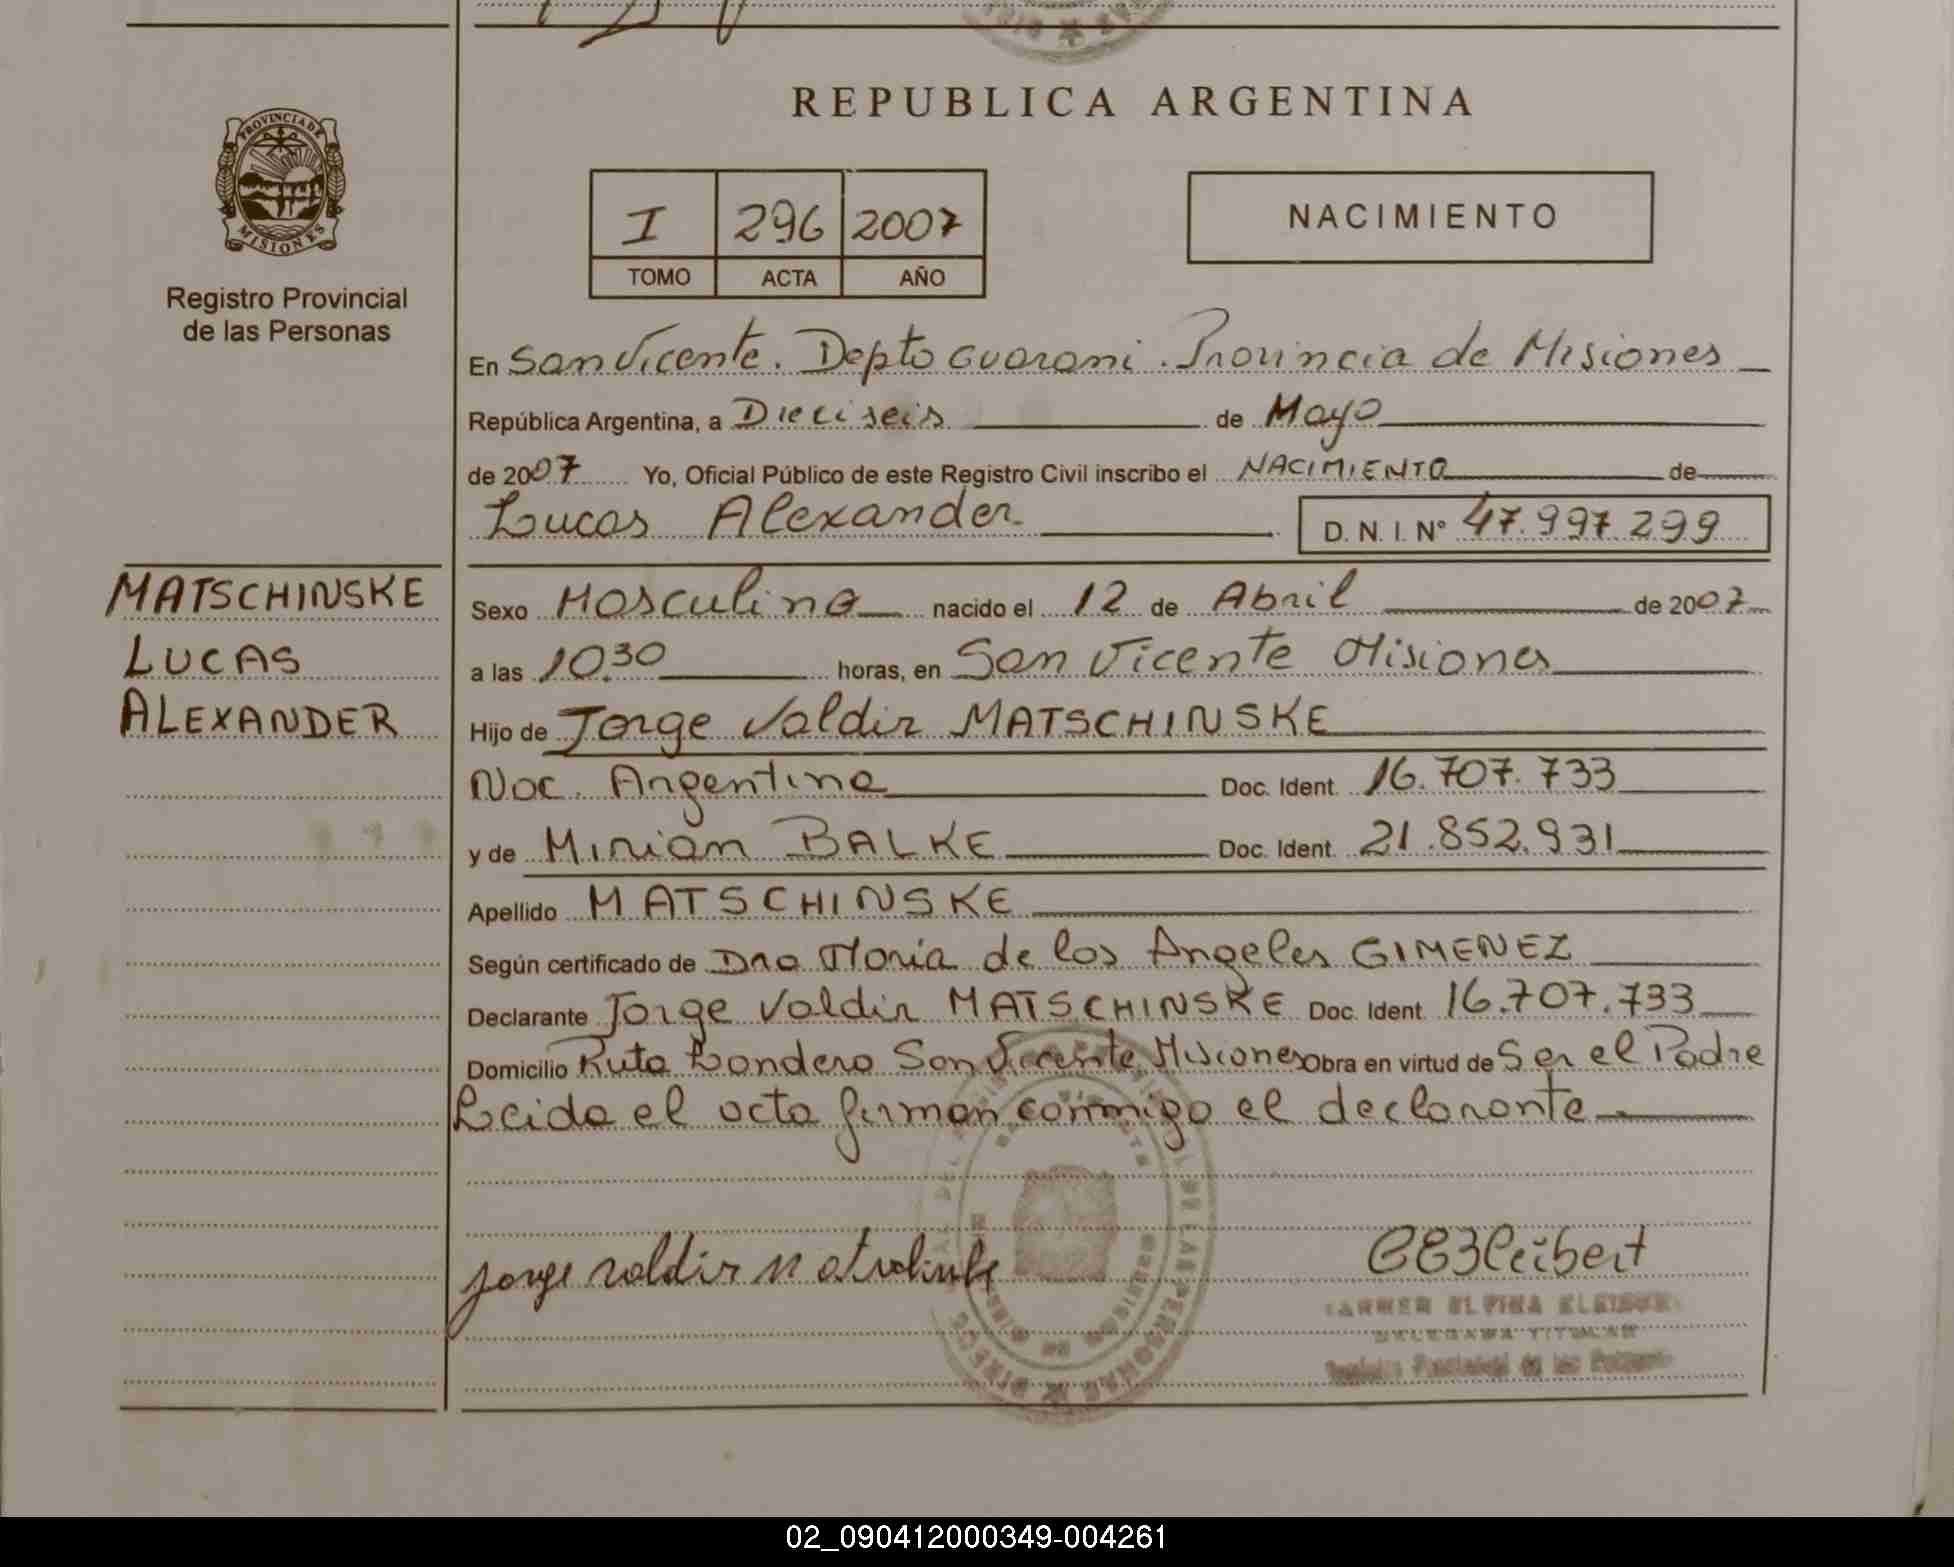 REPUBLICA ARGENTINA
PROVINCIA DE
MISIONES
Registro Provincial
de las Personas
I 296 2007
TOMO ACTA AÑO
NACIMIENTO
En San Vicente. Depto Guarani. Provincia de Misiones
República Argentina, a Dieciseis de Mayo
de 2007 Yo, Oficial Público de este Registro Civil inscribo el NACIMIENTO de
Lucas Alexander D. N. I. N° 47.997.299
MATSCHINSKE
LUCAS
ALEXANDER
Sexo Masculino nacido el 12 de Abril de 2007
a las 10.30 horas, en San Vicente Misiones
Hijo de Jorge Valdir MATSCHINSKE
Nac. Argentina Doc. Ident. 16.707.733
y de Mirian BALKE Doc. Ident. 21.852.931
Apellido MATSCHINSKE
Según certificado de Dra Maria de los Angeles GIMENEZ
Declarante Jorge Valdir MATSCHINSKE Doc. Ident 16.707.733
Domicilio Ruta Londero San Vicente Misiones Obra en virtud de Ser el Padre
Leida el acta firman conmigo el declarante
Jorge valdir
02_090412000349-004261